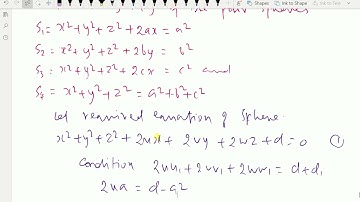 four spheres
S₁ = x²+y²+z²+2ax = a²
S₂ = x²+y²+z²+2by = b²
S₃ = x²+y²+z²+2cx = c² and
S₄ = x²+y²+z² = a²+b²+c²
Let required equation of Sphere
x²+y²+z²+2ux+2vy+2wz+d=0 ①
Condition 2uu₁+2vv₁+2ww₁ = d+d₁
2ua = d-a²